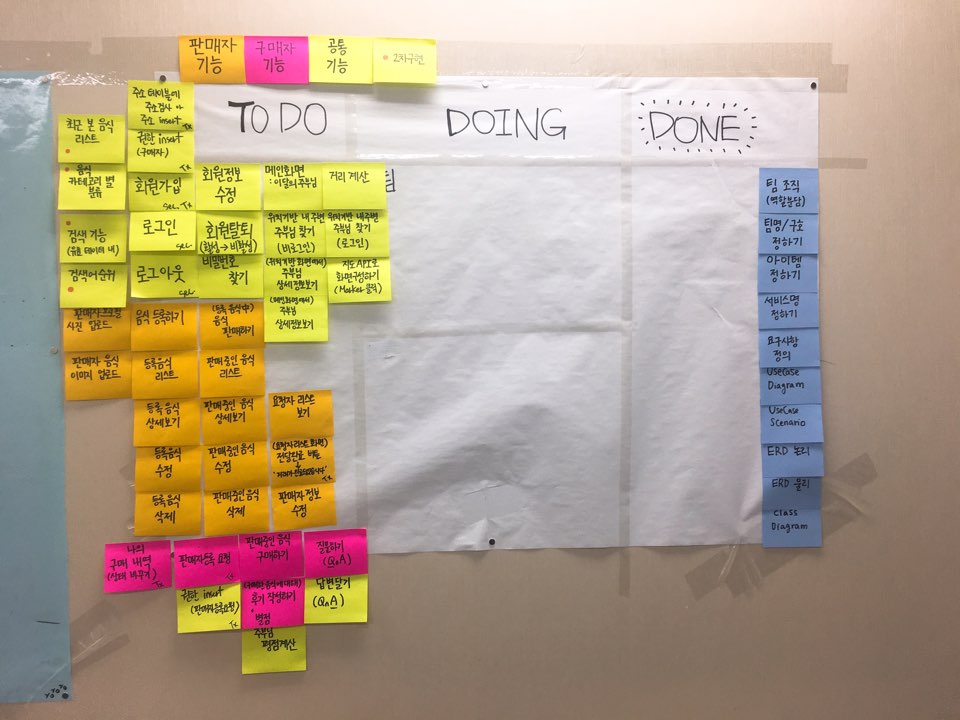 판매자
기능
구매자
기능
공통
기능
2차구현
TO DO
DOING
DONE
주소 테이블에
주소검사
주소 insert
Tx
권한 insert
(구매자)
Tx
최근 본 음식
리스트
음식
카테고리 별
분류
회원가입
sec. Tx
회원정보
수정
메인화면
: 이달의 주부님
거리 계산
팀
검색 기능
(유효 데이터 내)
로그인
sec
회원탈퇴
(활성→비활성)
위치기반 내 주변
주부님 찾기
(비로그인)
위치기반 내 주변
주부님 찾기
(로그인)
검색어 순위
로그아웃
sec
비밀번호
찾기
(위치기반 화면에서)
주부님
상세정보보기
지도 API로
화면구성하기
(Marker 클릭)
(메인화면에서)
주부님
상세정보보기
판매자 프로필
사진 업로드
음식 등록하기
(등록 음식 中)
음식
판매하기
판매자 음식
이미지 업로드
등록음식
리스트
판매중인 음식
리스트
등록 음식
상세보기
판매중인 음식
상세보기
요청자 리스트
보기
등록음식
수정
판매중인음식
수정
(요청자 리스트 화면)
전달완료 버튼
Tx
등록 음식
삭제
판매중인 음식
삭제
판매자 정보
수정
나의
구매 내역
(상태 바꾸기)
Tx
판매자등록 요청
판매중인 음식
구매하기
질문하기
(QnA)
권한 insert
(판매자등록요청)
Tx
후기 작성하기
별점
답변달기
(QnA)
주부님
평점계산
팀 조직
(역할분담)
팀명/구호
정하기
아이템
정하기
서비스명
정하기
요구사항
정의
UseCase
Diagram
UseCase
Scenario
ERD 논리
ERD 물리
class
Diagram